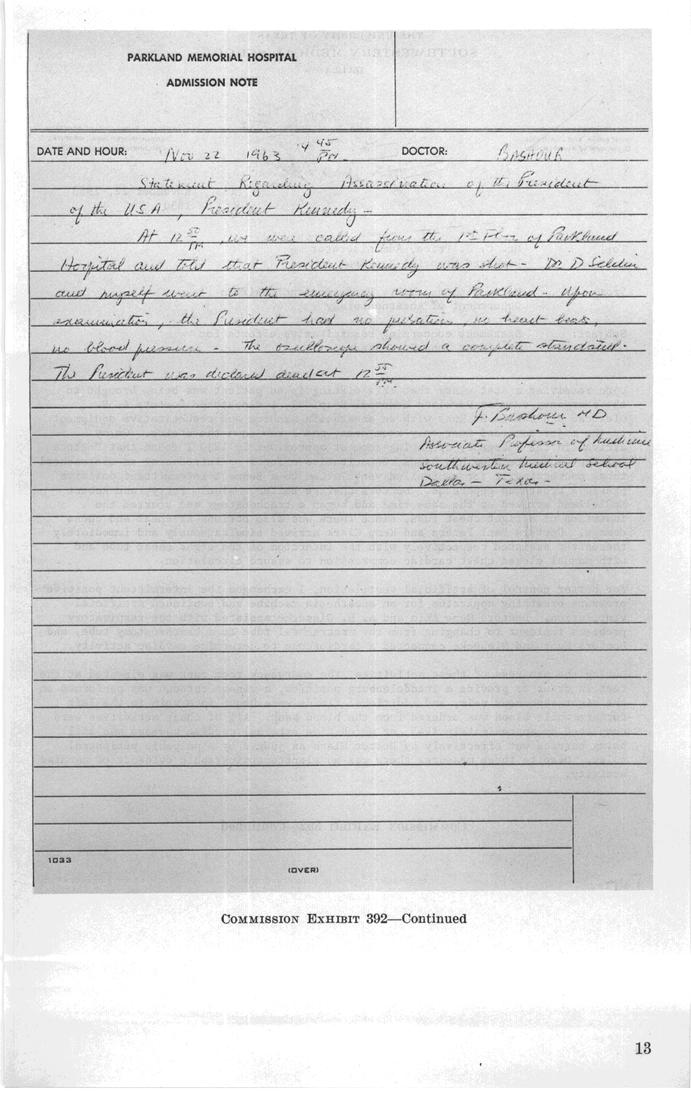 PARKLAND MEMORIAL HOSPITAL
ADMISSION NOTE
DATE AND HOUR: Nov 22 1963 4 45 PM DOCTOR: BASHOUR
Statement Regarding Assassination of the President
of the U.S.A, President Kennedy –
At 12 50 PM, we were called from the 1st Floor of Parkland
Hospital and told that President Kennedy was shot – Dr D Seldin
and myself went to the emergency room of Parkland – Upon
examination, the President had no pulsation, no heart beats,
no blood pressure – The oscilloscope showed a complete standstill.
The President was declared dead at 12 55 PM.
F. Bashour MD
Associate Professor of Medicine
Southwestern Medical School
Dallas – Texas –
1033
(OVER)
COMMISSION EXHIBIT 392—Continued
13